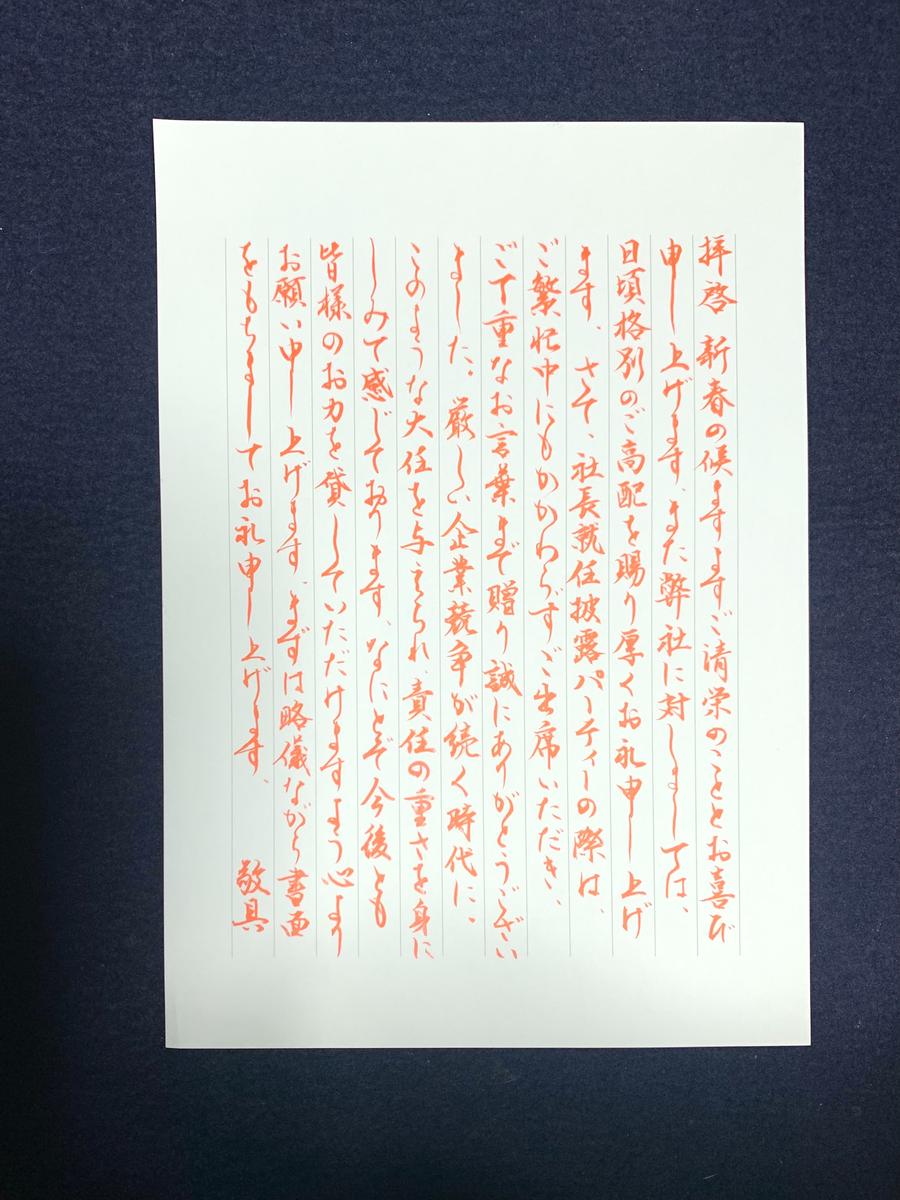 拝啓 新春の候ますますご清栄のこととお喜び
申し上げます。また弊社に対しましては、
日頃格別のご高配を賜り厚くお礼申し上げ
ます。さて、社長就任披露パーティーの際は、
ご繁忙中にもかかわらずご出席いただき、
ご丁重なお言葉まで贈り誠にありがとうござい
ました。厳しい企業競争が続く時代に。
このような大任を与えられ責任の重さを身に
しみて感じております。なにとぞ今後とも
皆様のお力を貸していただけますよう心より
お願い申し上げます。まずは略儀ながら書面
をもちましてお礼申し上げます。 敬具